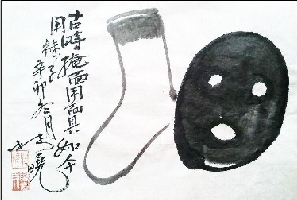 古時掩面用面具如今
用襪子辛卯冬月